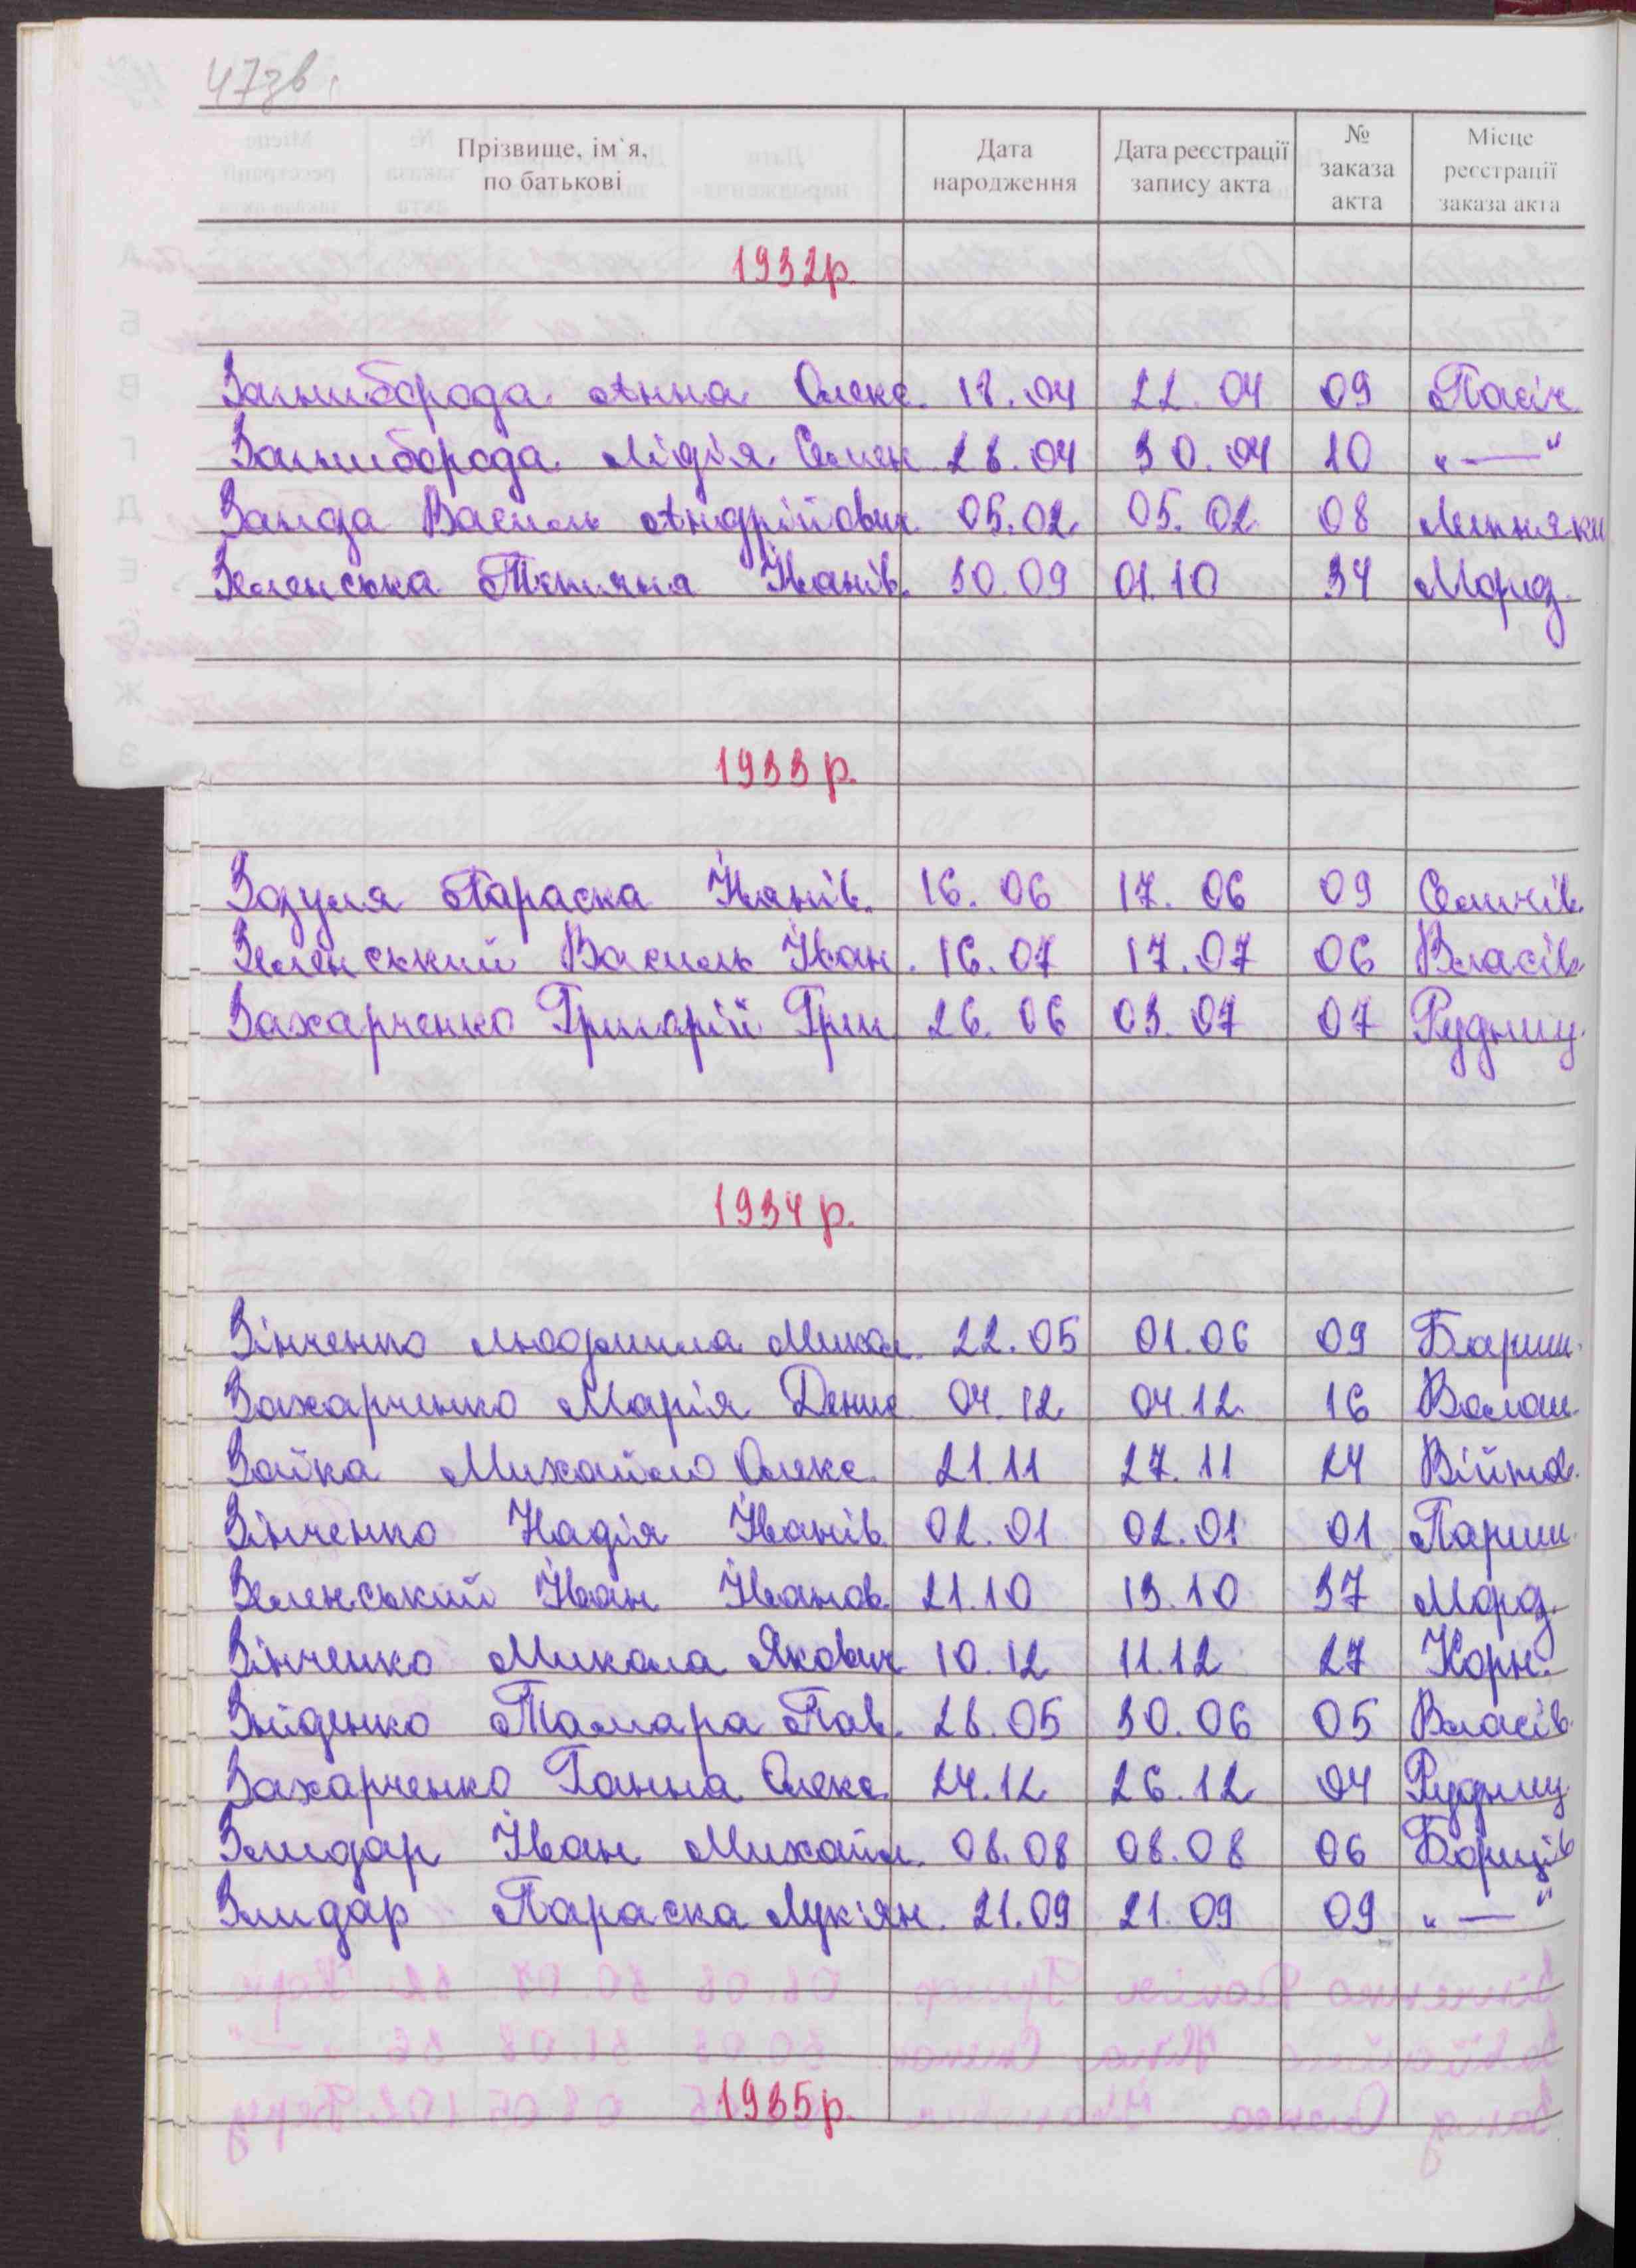 47зв.
Прізвище, ім`я, по батькові Дата народження Дата реєстрації запису акта № заказа акта Місце реєстрації заказа акта
1932р.
Загниборода Анна Олекс. 18.04 22.04 09 Пасіч
Загниборода Лідія Семен 28.04 30.04 10 "—"
Заида Василь Андрійович 05.02 05.02 08 Липняки
Зеленська Тетяна Іванів. 30.09 01.10 34 Моризд.
1933 р.
Зозуля Параска Іванів. 16.06 17.06 09 Семчів.
Зеленський Василь Іван. 16.07 17.07 06 Власів.
Захарченко Григорій Григ 26.06 03.07 07 Рудниц.
1934 р.
Зінченко Людмила Микол. 22.05 01.06 09 Бариш.
Захарченко Марія Денис 04.12 04.12 16 Волош.
Зайка Михайло Олекс 21.11 27.11 24 Війтов.
Зінченко Надія Іванів 02.01 02.01 01 Париш.
Зеленський Іван Іванов. 21.10 13.10 37 Морд.
Зінченко Микола Якович 10.12 11.12 27 Корн.
Знйденко Тамара Пав. 28.05 30.06 05 Власів.
Захарченко Ганна Олекс. 24.12 26.12 04 Рудниц
Злидар Іван Михайл. 08.08 08.08 06 Борщів
Злидар Параска Лук'ян. 21.09 21.09 09 "—"
1935р.